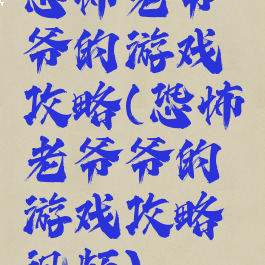 恐怖老爷
爷的游戏
攻略(恐怖
老爷爷的
游戏攻略
视频)